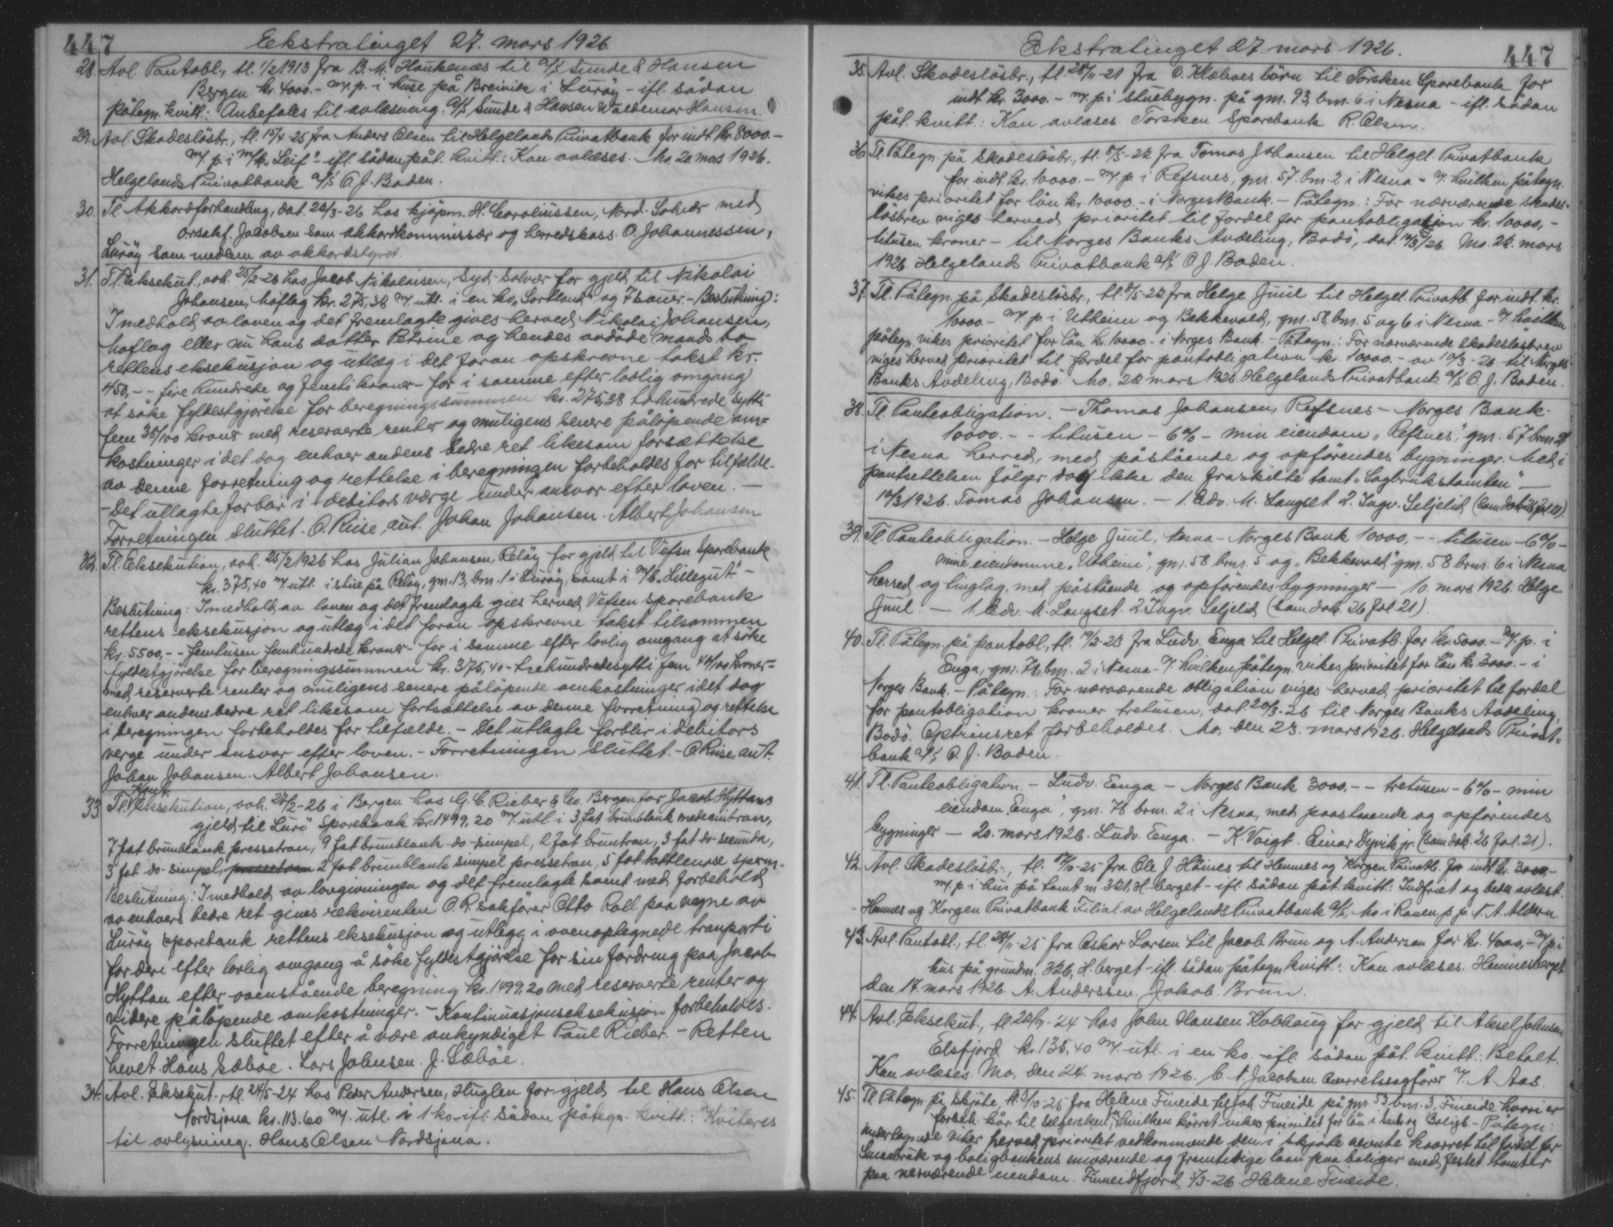 447 Ekstratinget 27. mars 1926.
28. Avl. Pantobl., tl. 1/2 1913 fra B. M. Haukenæs til A/S Sunde & Hansen
Bergen kr. 4000.- m/p. i huse på Breivik i Lurøy - ifl. sådan
påtegn. kvitt: Anbefales til avlæsning. A/S Sunde & Hansen Valdemar Hansen.
29. Avl. Skadesløsbr., tl. 25 fra Anders Olsen til Helgelands Privatbank for indt. kr. 8000.-
m/p. i m/k "Leif" - ifl. sådan påt. kvitt: Kan avlæses. Mo, 20 mars 1926.
Helgelands Privatbank A/S O. J. Baden.
30. Tl. Akkordforhandling, dat. 24/3-26 hos kjøpm. H. Coroliussen, Nord-Solvær med
orsakf. Jacobsen som akkordkommissær og herredskass. O. Johannessen,
Lurøy som medlem av akkordstyret.
31. Tl. Eksekut., avh. 25/2-26 hos Jacob Nikolaisen, Syd-Solvær for gjeld til Nikolai
Johansen, Haflag kr. 275,38 m/ utl. i en ko, Sortland og 7 sauer. - Beslutning:
I medhold av loven og det fremlagte gives herved Nikolai Johansen,
Haflag eller nu hans datter Petrine og hendes avdøde mands bo
rettens eksekusjon og utlæg i det foran opskrevne takst kr.
450,-- fire hundrede og femti kroner - for i samme efter lovlig omgang
at søke fyldestgjørelse for beregningssummen kr. 275,38 tohundrede sytti
fem 38/100 kroner med reserverte renter og muligens senere påløpende om-
kostninger i det dog enhver andens bedre ret likesom forsættelse
av denne forretning og rettelse i beregningen forbeholdes for tilfælde.
- Det utlagte forblir i debitors værge under ansvar efter loven. -
Forretningen sluttet. O. Ruise, aut. Johan Johansen. Albert Johansen
32. Tl. Eksekution, avh. 25/2 1926 hos Julian Johansen, Reløy for gjeld til Vefsn Sparebank
kr. 375,40 m/ utl. i stue på Reløy, gnr. 13, bnr. 1 i Lurøy, samt i m/k "Lillegut" -
Beslutning: I medhold av loven og det fremlagte gies herved Vefsen sparebank
rettens eksekusjon og utlæg i det foran opskrevne takst tilsammen
kr. 5500,-- femtusen femhundrede kroner - for i samme efter lovlig omgang at søke
fyldestgjørelse for beregningssummen kr. 375,40 - trehundredesytti fem 40/100 kroner -
med reserverte renter og muligens senere påløpende omkostninger i det dog
enhver andens bedre ret likesom fortsættelse av denne forretning og rettelse
i beregningen forbeholdes for tilfælde. - Det utlagte forblir i debitors
verge under ansvar efter loven. - Forretningen sluttet. - O. Ruise, aut.
Johan Johansen. Albert Johansen.
33. Tl. Kont. Eksekution, avh. 27/2-26 i Bergen hos G. C. Rieber & Co. Bergen for Jacob Hyttans
gjeld til Lurø Sparebank kr. 1499,20 m/ utl. i 3 fat brunblank medecintran,
7 fat brunblank pressetran, 9 fat brunblank do - simpel, 2 fat bruntran, 3 fat do secunda,
3 fat do - simpel, 2 fat brunblank simpel pressetran, 5 fat sperm.
Beslutning: I medhold av lovgivningen og det fremlagte samt med forbehold
av enhvers bedre ret gives rekvirenten O.R. sakfører Otto Roll paa vegne av
Lurøy sparebank rettens eksekusjon og utlegg i ovenoptegnede tranparti
for deri efter lovlig omgang å søke fyldestgjørelse for sin fordring paa Jacob
Hyttan efter ovenstående beregning kr. 1499,20 med reserverte renter og
videre påløpende omkostninger. - Kontinuasjonseksekusjon forbeholdes.
Forretningen sluttet efter å være ankyndiget Paul Rieber. - Retten
hevet Hans Sæbøe. Lars Johnsen. J. Sæbøe.
34. Avl. Eksekut., tl. 24/5-24 hos Peder Andersen, Huglen for gjeld til Hans Olsen
Nordsjona kr. 113.60 m/ utl. i 1 ko. ifl. sådan påtegn. kvitt: Kviteres
til avlysning. Hans Olsen Nordsjona.
Ekstratinget 27. mars 1926. 447
35. Avl. Skadesløsbr., tl. 28/11-21 fra O. Klæboes børn til Torsken Sparebank for
indt. kr. 3000.- m/p. i stuebygn. på gnr. 93, bnr. 6 i Nesna - ifl. sådan
påt. kvitt.: Kan avlæses. Torsken Sparebank R. Olsen.
36. Tl. Påtegn. på skadesløsbr., tl. 8/5-22 fra Tomas Johansen til Helgel. Privatbank
for indt. kr. 10000.- m/p. i Refsnes, gnr. 57, bnr. 2 i Nesna - v. hvilken påtegn.
vikes prioritet for lån kr. 10000.- i Norges Bank. - Påtegn.: For nærværende skades-
løsbrev viges herved prioritet til fordel for pantobligasjon kr. 10000,-
titusen kroner - til Norges Banks Avdeling, Bodø, dat. 10/3/26 Mo. 22. mars
1926. Helgelands Privatbank A/S O. J. Baden.
37. Tl. Påtegn. på skadesløsbr., tl. 8/5-22 fra Helge Juul til Helgel. Privatb. for indt. kr.
10000.- m/p. i Utheim og Bekkevold, gnr. 58, bnr. 5 og 6 i Nesna - v. hvilken
påtegn. vikes prioritet for lån kr. 10000.- i Norges Bank - Påtegn.: For nærværende skadesløsbrev
viges herved prioritet til fordel for pantobligation kr. 10000.- av 10/3-26 til Norges
Banks Avdeling, Bodø. Mo. 22 mars 1926. Helgelands Privatbank A/S O. J. Baden.
38. Tl. Panteobligation. - Thomas Johansen, Refsnes - Norges Bank.
10000.-- titusen - 6% - min eiendom "Refsnes", gnr. 57 bnr. 2
i Nesna herred, med påstående og opførendes bygninger. Med i
pantsettelsen følger dog ikke den fraskilte tomt "Sagbrukstomten". -
10/3 1926. Tomas Johansen. - 1. Edv. M. Langset 2. Tagv. Seljelid (Sam. dok. 26 fol. 21)
39. Tl. Panteobligation. - Helge Juul, Nesna - Norges Bank 10000,-- titusen - 6% -
mine eiendomme "Utheim", gnr. 58 bnr. 5 og "Bekkevold" gnr. 58 bnr. 6 i Nesna
herred og tinglag, med påstående og opførendes bygninger - 10. mars 1926. Helge
Juul. - 1. Edv. M. Langset. 2. Tagv. Seljelid (Sam. dok. 26 fol. 21).
40. Tl. Påtegn. på pantobl., tl. 25 fra Ludv. Enga til Helgel. Privatb. for kr. 5000.- m/p. i
Enga, gnr. 78, bnr. 2 i Nesna - v. hvilken påtegn. vikes prioritet for lån kr. 3000.- i
Norges Bank. - Påtegn.: For nærværende obligation viges herved prioritet til fordel
for pantobligation kroner tretusen, dat. 20/3-26 til Norges Banks Avdeling,
Bodø. Optrinsret forbeholdes. Mo, den 23. mars 1926. Helgelands Privat-
bank A/S O. J. Baden.
41. Tl. Panteobligation. - Ludv. Enga - Norges Bank 3000.-- tretusen - 6% - min
eiendom "Enga", gnr. 78 bnr. 2 i Nesna, med paastaaende og opførendes
bygninger - 20. mars 1926. Ludv. Enga. - K. Voigt. Einar Dyrvik jr. (Sam. dok. 26 fol. 21).
42. Avl. Skadesløsbr., tl. 25 fra Ole J. Høines til Hemnes og Korgen Privatb. for indt. kr. 3000.-
m/p. i hus på tomt nr. 321, H.berget - ifl. sådan påt. kvitt.: Indfriet og bedes avlæst.
Hemnes og Korgen Privatbank Filial av Helgelands Privatbank A/S, Mo i Ranen p. p. T. A. Aldern.
43. Avl. Pantobl., tl. 24/11-25 fra Oskar Larsen til Jacob Brun og A. Andersen for kr. 4000,- m/p. i
hus på grundnr. 326, H.berget - ifl. sådan påtegn. kvitt.: Kan avlæses. Hemnesberget
den 17. mars 1926. A. Anderssen. Jakob Brun.
44. Avl. Eksekut., tl. 24 hos John Hansen Kobhaug for gjeld til Aksel Johnsen
Elsfjord kr. 135.40 m/ utl. i en ko. - ifl. sådan påt. kvitt.: Betalt.
Kan avlæses. Mo, den 24. mars 1926. C. A. Jacobsen Overretssagfører v. A. Aas.
45. Tl. Påtegn. på skjøte, tl. 3/10 25 fra Helene Fineide til Joh. Fineide på gnr. 53 bnr. 3, Fineide hvori er
forbeh. kår til selgersken, v. hvilken kårret vikes prioritet for lån i Småbr. og Boligb. - Påtegn.:
Undertegnede viker herved prioritet vedkommende den i skjøte nevnte kaarret til fordel for
Smaabruk og boligbankens nuværende og fremtidige laan paa boliger med festet tomter
paa nærværende eiendom. Finneidfjord 1/3-26. Helene Fineide.